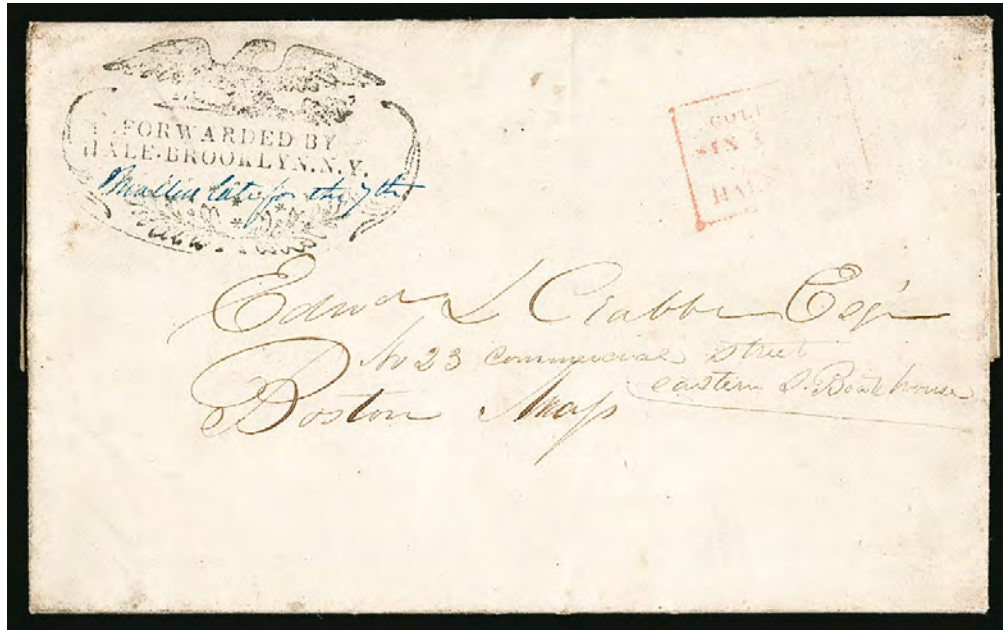 FORWARDED BY
HALE. BROOKLYN. N. Y.
Mailed late for the 7th
COLL
SIX
HAL
Edwd L Crabb Esqr
No 23 Commercial Street
eastern S. Boat house
Boston Mass